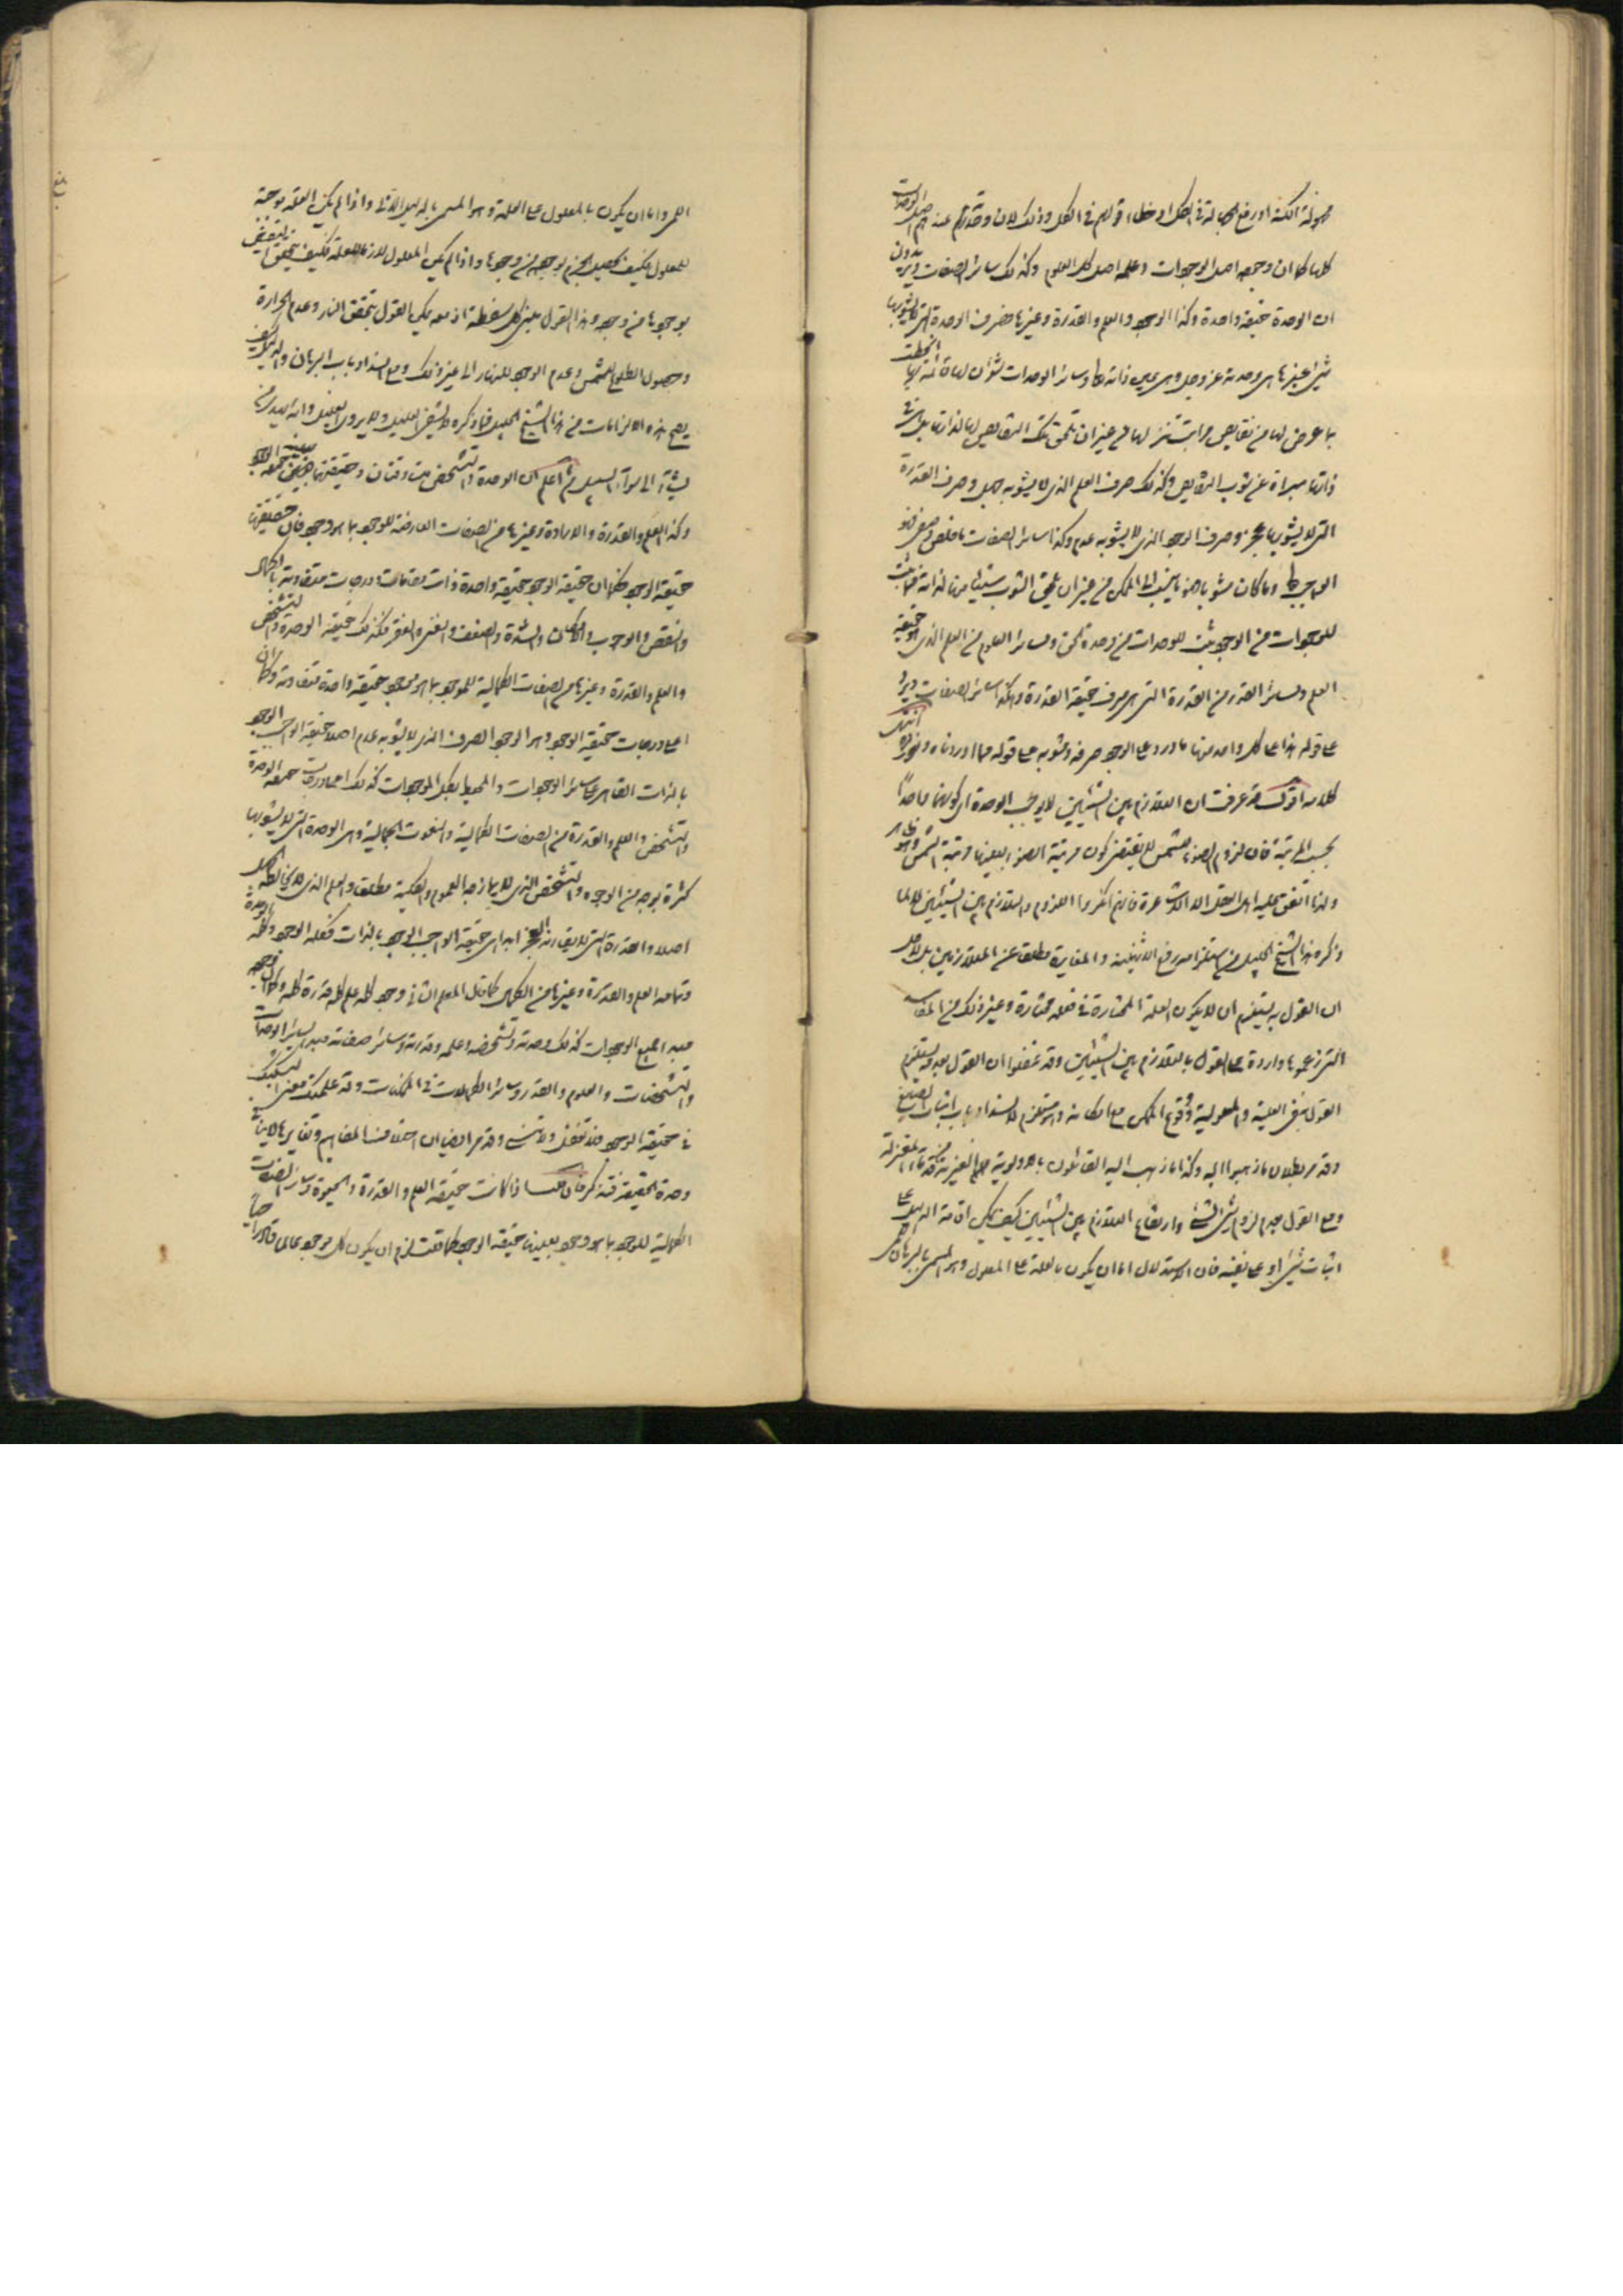 مجهولة الكنه او رفع الجهالة في الكل او خطاء قولهم في الكل وذلك لان وحدته عندهم اصل الوحدات
كلها كما ان وجوده اصل الوجودات وعلمه اصل كل العلوم وكذلك سائر الصفات ويريدون
ان الوحدة حقيقة واحدة وكذا الوجود والعلم والقدرة وغيرها فصرف الوحدة التي لا يشوبها
شيء غيرها هي وحدته عز وجل وهي عين ذاته تعالى وسائر الوحدات شؤن لها
بما عرض لها من نقايص مراتب تنزلها من غير ان تلحق تلك النقايص لها لذاتها بل هي في
ذاتها مبراة عن شوب النقايص وكذلك صرف العلم الذي لا يشوبه جهل وصرف القدرة
التي لا يشوبها عجز وصرف الوجود الذي لا يشوبه عدم وكذا سائر الصفات ما خلص وصرف فهو
الواجب تعالى وما كان مشوبا فهو ما ينسب الى الممكن من غير ان يلحق الشوب شيئا منها لذاته
للموجودات من الوجود يثبت للوحدات من وحدة الحق ولسائر العلوم من العلم الذي هو حقيقة
العلم ولسائر القدر من القدرة التي هي صرف حقيقة القدرة وهكذا سائر الصفات ويرد
على قوله هذا على كل واحد منها ما ورد على الوجود صرفه ومشوبه على قوله مما اوردناه ونورده انتهى
كلامه اقول قد عرفت ان التلازم بين الشيئين لا يوجب الوحدة اي كونهما واحدا
بحسب المرتبة فان لزوم الضوء للشمس لا يقتضي كون مرتبة الضوء بعينها مرتبة الشمس وهو ظاهر
ولذا اتفق عليه اهل العقل الا الاشاعرة فانهم انكروا اللزوم والتلازم بين الشيئين لا لما
ذكره هذا الشيخ الجليل من استلزامه رفع الاثنينية والمغايرة مطلقا عن المتلازمين بل لاجل
ان القول به يستلزم ان لا يكون العلة المختارة في فعله مختارة وغير ذلك من المفاسد
التي زعموها واردة على القول بالتلازم بين الشيئين وقد غفلوا ان القول بعدمه يستلزم
القول بنفي العلية والمعلولية ووقوع الممكن مع امكانه وهو مستلزم لانسداد باب اثبات الصانع
وقد مر بطلان ما ذهبوا اليه وكذا ما ذهب اليه القائلون بالاولوية الغير من المعتزلة
ومع القول بعدم لزوم شيء لشيء وارتفاع التلازم بين الشيئين كيف يمكن اقامة الدليل على
اثبات شيء او على نفيه فان الاستدلال اما ان يكون بالعلة على المعلول وهو المسمى بالبرهان
اللمي واما ان يكون بالمعلول على العلة وهو المسمى بالدليل الاني واذا لم يكن العلة موجبة
للمعلول فكيف يحصل الجزم بوجوده من وجودها واذا لم يكن المعلول لازما للعلة فكيف يتحقق التصديق
بوجودها من وجوده وهذا القول بعينه كل سفسطة اذ معه يمكن القول بتحقق النار وعدم الحرارة
وحصول الطلوع للشمس وعدم الوجود للنهار الى غير ذلك ومع انسداد باب البرهان والدليل كيف
يصح هذه الالزامات من هذا الشيخ الجليل فما ذكره لا يشفي العليل ولا يروي الغليل والله يهدي من
يشاء الى سواء السبيل ثم اعلم ان الوحدة والتشخص متساوقتان وحقيقتهما بعينه حقيقة الوجود
وكذا العلم والقدرة والارادة وغيرها من الصفات العارضة للموجود بما هو موجود فان حقيقتها
حقيقة الوجود فكما ان حقيقة الوجود حقيقة واحدة ذات مقامات ودرجات متفاوتة بالكمال
والنقص والوجوب والامكان والشدة والضعف والغنى والفقر فكذلك حقيقة الوحدة والتشخص
والعلم والقدرة وغيرها من الصفات الكمالية للموجود بما هو موجود حقيقة واحدة متفاوتة وكما ان
اعلى درجات حقيقة الوجود وهو الوجود الصرف الذي لا يشوبه عدم اصلا حقيقة الواجب الوجود
بالذات القاهر على سائر الوجودات والمحيط بكل الموجودات كذلك اعلى درجات حقيقة الوحدة
والتشخص والعلم والقدرة من الصفات الكمالية والنعوت الجمالية وهي الوحدة التي لا يشوبها
كثرة بوجه من الوجوه والتشخص الذي لا يمازجه العموم والكلية مطلقا والعلم الذي لا يخالطه الجهل
اصلا والقدرة التي لا يقارنه العجز ابدا هي حقيقة الواجب الوجود بالذات فكله الوجود وكله الوحدة
وتمامه العلم والقدرة وغيرها من الكمال كما قال المعلم الثاني وجود كله علم كله قدرة كله وكما ان وجوده
مبدء لجميع الوجودات كذلك وحدته وتشخصه وعلمه وقدرته وسائر صفاته مبدء لسائر الوحدات
والتشخصات والعلوم والقدر وسائر الكمالات في الممكنات وقد علمت معنى التشكيك
في حقيقة الوجود فلا تغفل ولا تنس وقد مر ايضا ان اختلاف المفاهيم وتغايرها لا ينافي
وحدة الحقيقة فتذكر فان قلت اذا كانت حقيقة العلم والقدرة والحيوة وسائر الصفات
الكمالية للموجود بما هو موجود بعينها حقيقة الوجود كما قلت لزم ان يكون كل موجود عالما قادرا حيا